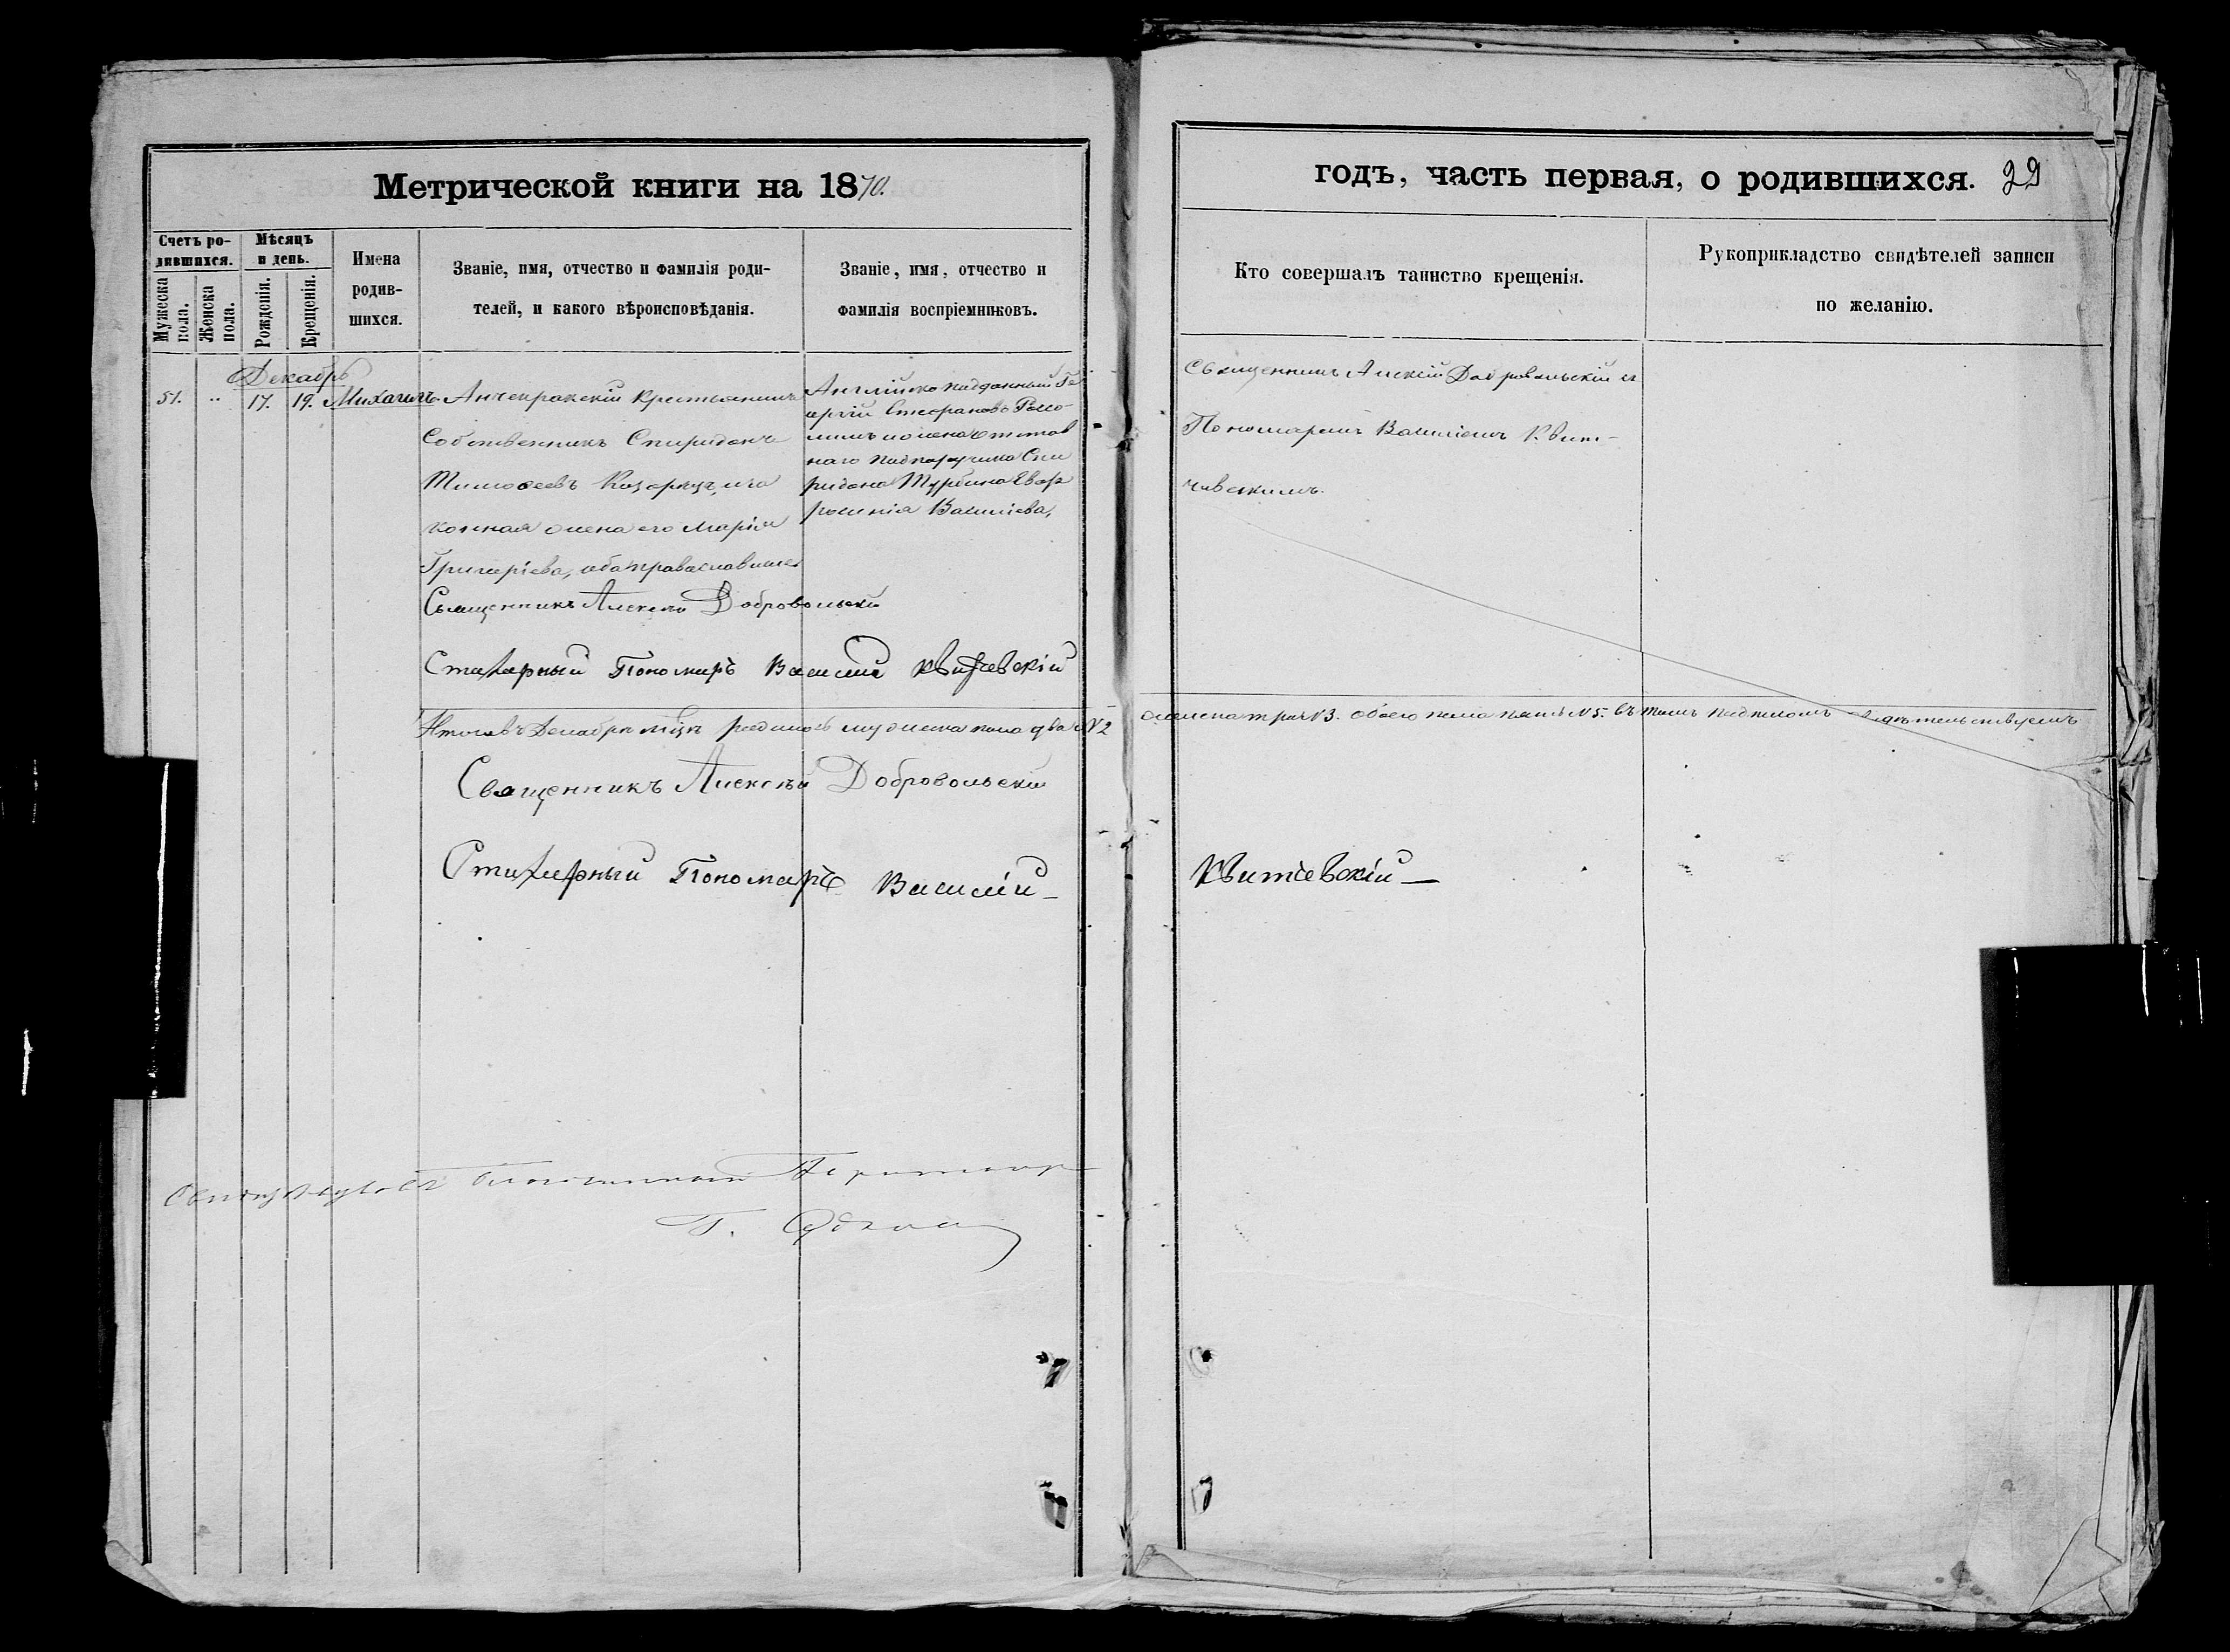 Метрической книги на 1870.
годъ, часть первая, о родившихся. 29
Счетъ ро-
дившихся.
Мужеска пола.
Женска пола.
Мѣсяцъ и день.
Рожденія.
Крещенія.
Имена родив-
шихся.
Званіе, имя, отчество и фамилія роди-
телей, и какого вѣроисповѣданія.
Званіе, имя, отчество и
фамилія воспріемниковъ.
Кто совершалъ таинство крещенія.
Рукоприкладство свидѣтелей записи
по желанію.
Декабрь
51. „ 17. 19. Михаилъ.
Крестьянинъ
Собственникъ Спиридонъ
Тимоѳеевъ
конная жена его Марія
Григоріева, оба православные
Священникъ Алексѣй Добровольскій
Стихарный Пономарь Василій Квитчевскій
Англійско подданный Ге-
оргій Стефановъ
жена отстав
наго подпоручика Спи
ридона Евф
росинія Василіева,
Священникъ Алексій Добровольскій съ
Пономаремъ Василіемъ Квит-
чевскимъ.
Итого въ Декабрѣ мцѣ родилось мужеска пола два №2
женска три №3. обоего пола пять №5. въ томъ подписомъ свидѣтельствуемъ
Священникъ Алексѣй Добровольскій
Стихарный Пономарь Василій – Квитчевскій –